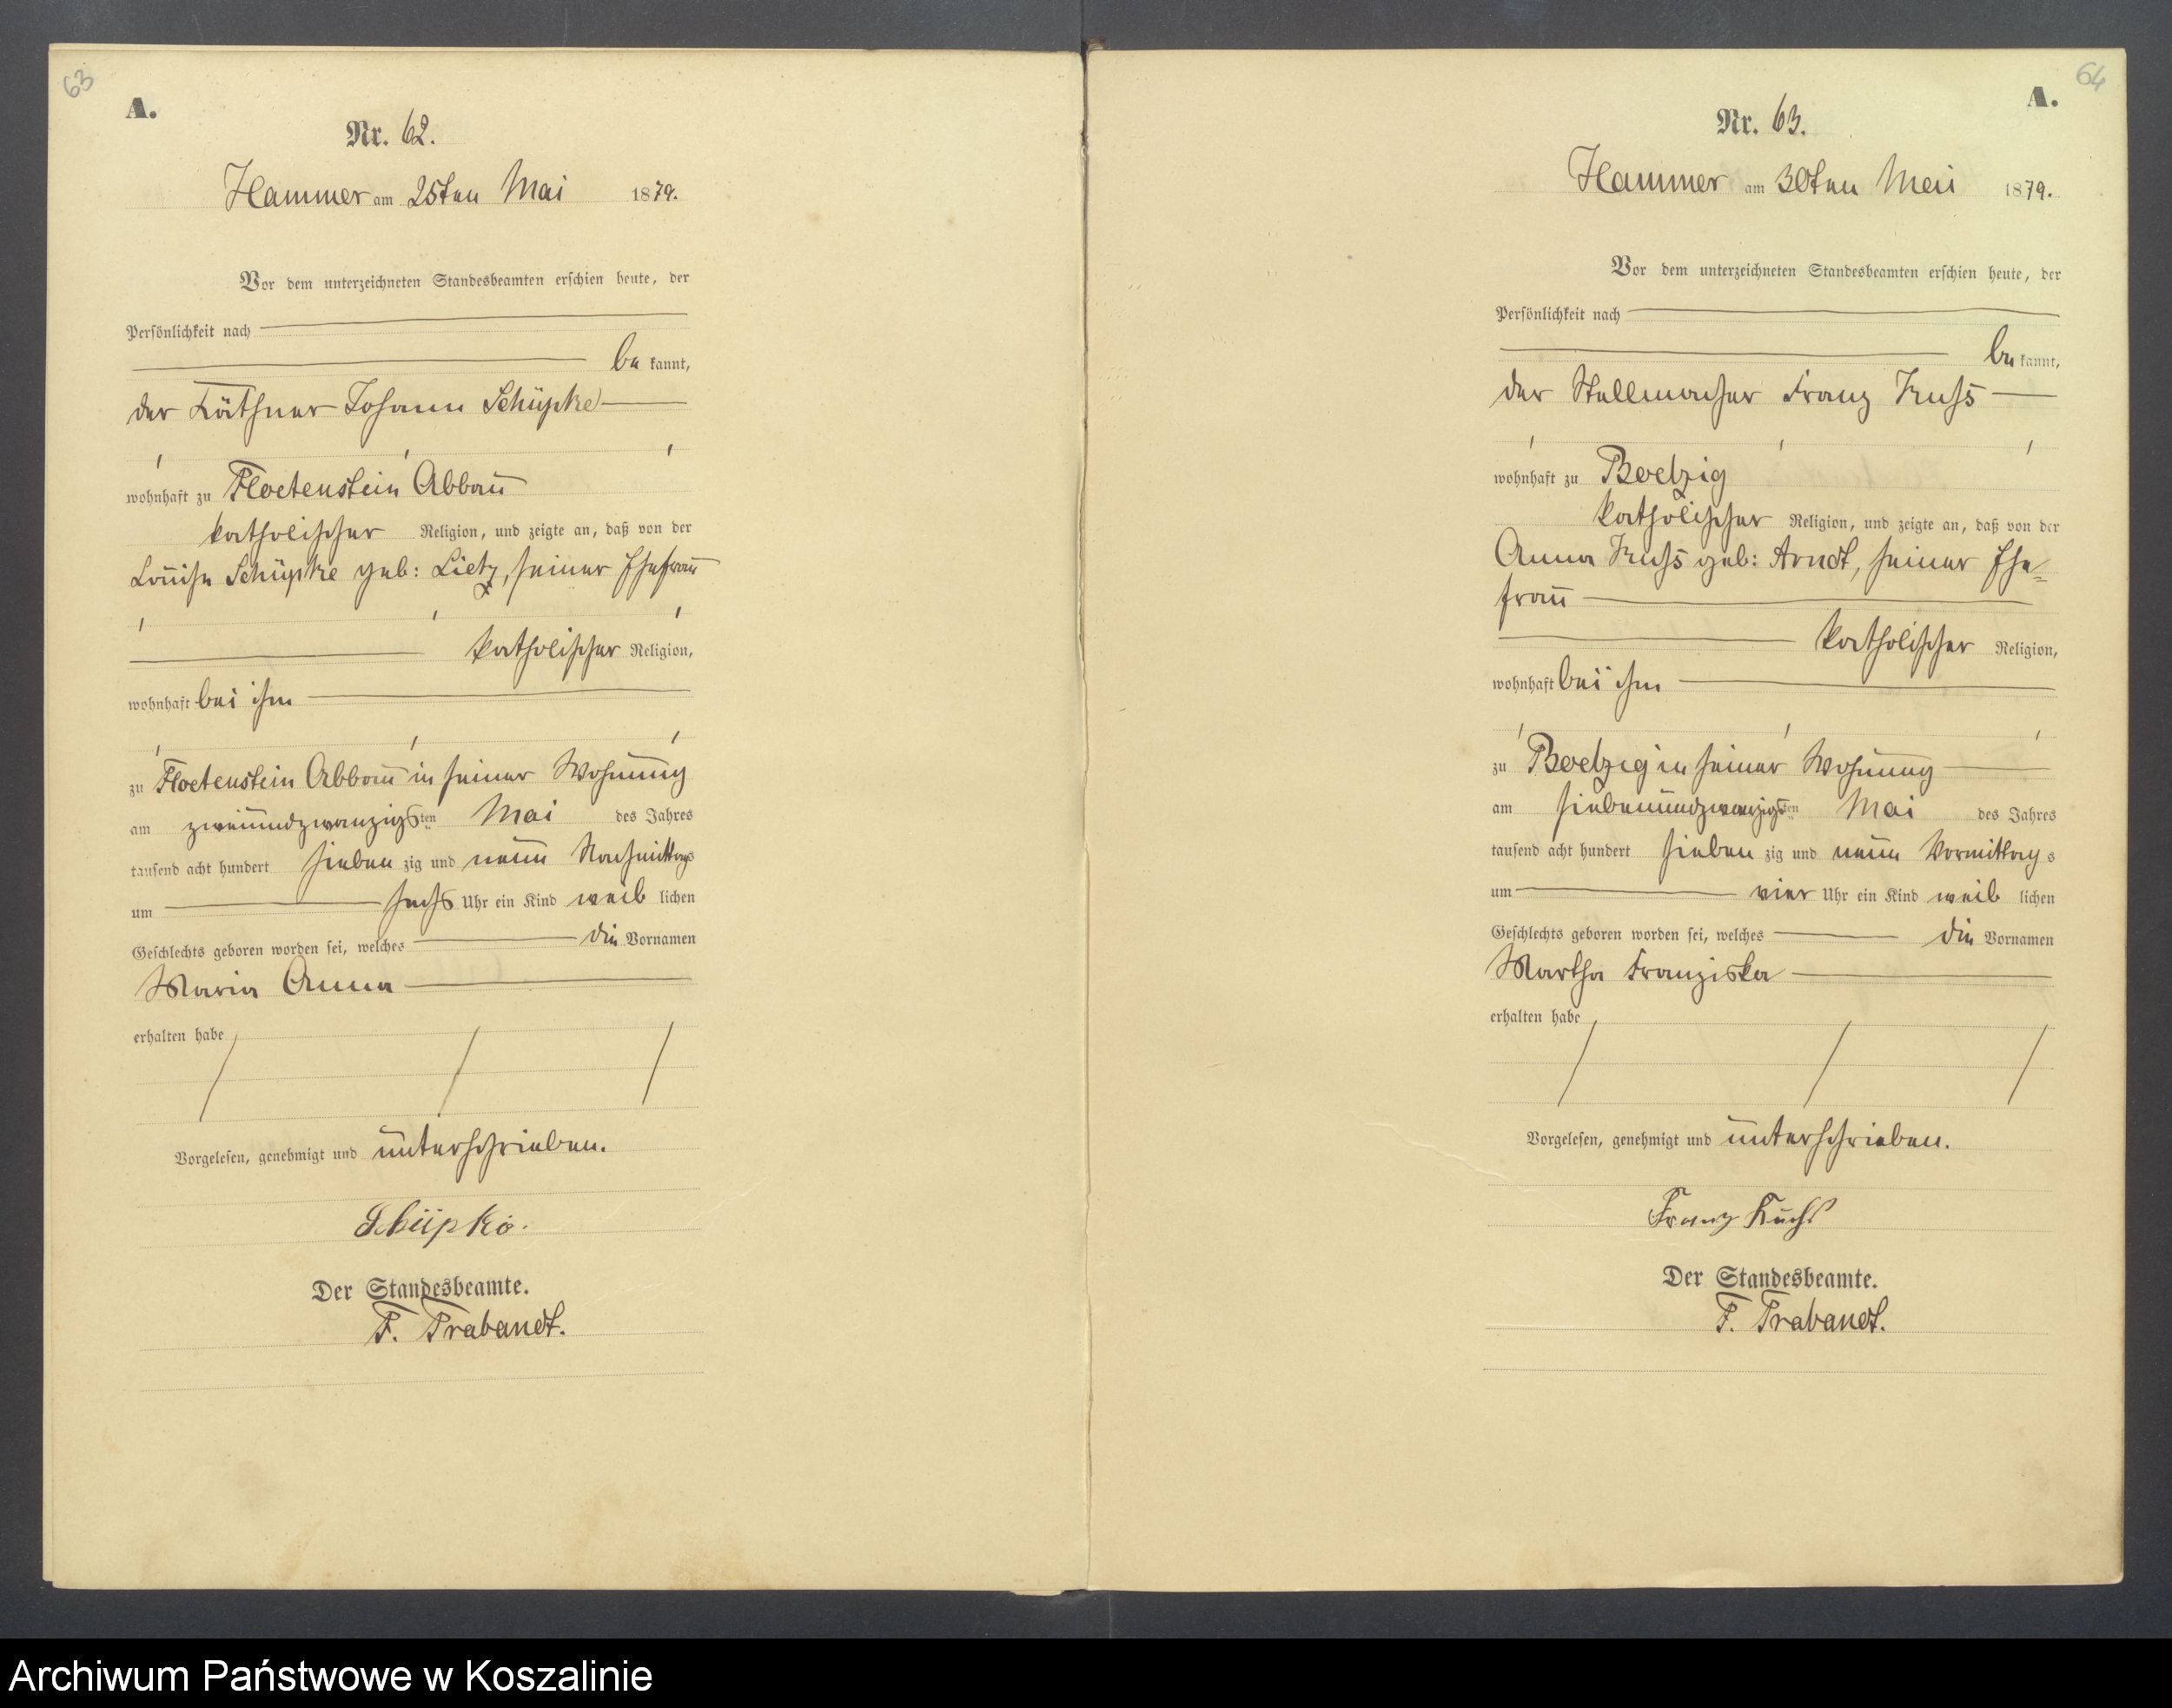 63
A.
Nr. 62.
Hammer am 25ten Mai 1879.
Vor dem unterzeichneten Standesbeamten erschien heute, der
Persönlichkeit nach
be kannt,
der Käthner Johann Schüpke
wohnhaft zu Floetenstein Abbau
katholischer Religion, und zeigte an, daß von der
Louise Schüpke geb: Lietz, seiner Ehefrau
katholischer Religion,
wohnhaft bei ihm
zu Floetenstein Abbau in seiner Wohnung
am zweiundzwanzigsten Mai des Jahres
tausend acht hundert sieben zig und neun Nachmittags
um sechs Uhr ein Kind weib lichen
Geschlechts geboren worden sei, welches die Vornamen
Maria Anna
erhalten habe
Vorgelesen, genehmigt und unterschrieben.
Schüpke.
Der Standesbeamte.
F. Trabandt.
64
A.
Nr. 63.
Hammer am 30ten Mai 1879.
Vor dem unterzeichneten Standesbeamten erschien heute, der
Persönlichkeit nach
be kannt,
der Stellmacher Franz Kuhs
wohnhaft zu Boelzig
katholischer Religion, und zeigte an, daß von der
Anna Kuhs geb: Arndt, seiner Ehe=
frau
katholischer Religion,
wohnhaft bei ihm
zu Boelzig in seiner Wohnung
am siebenundzwanzigsten Mai des Jahres
tausend acht hundert sieben zig und neun Vormittag s
um vier Uhr ein Kind weib lichen
Geschlechts geboren worden sei, welches die Vornamen
Martha Franziska
erhalten habe
Vorgelesen, genehmigt und unterschrieben.
Franz
Der Standesbeamte.
F. Trabandt.
Archiwum Państwowe w Koszalinie